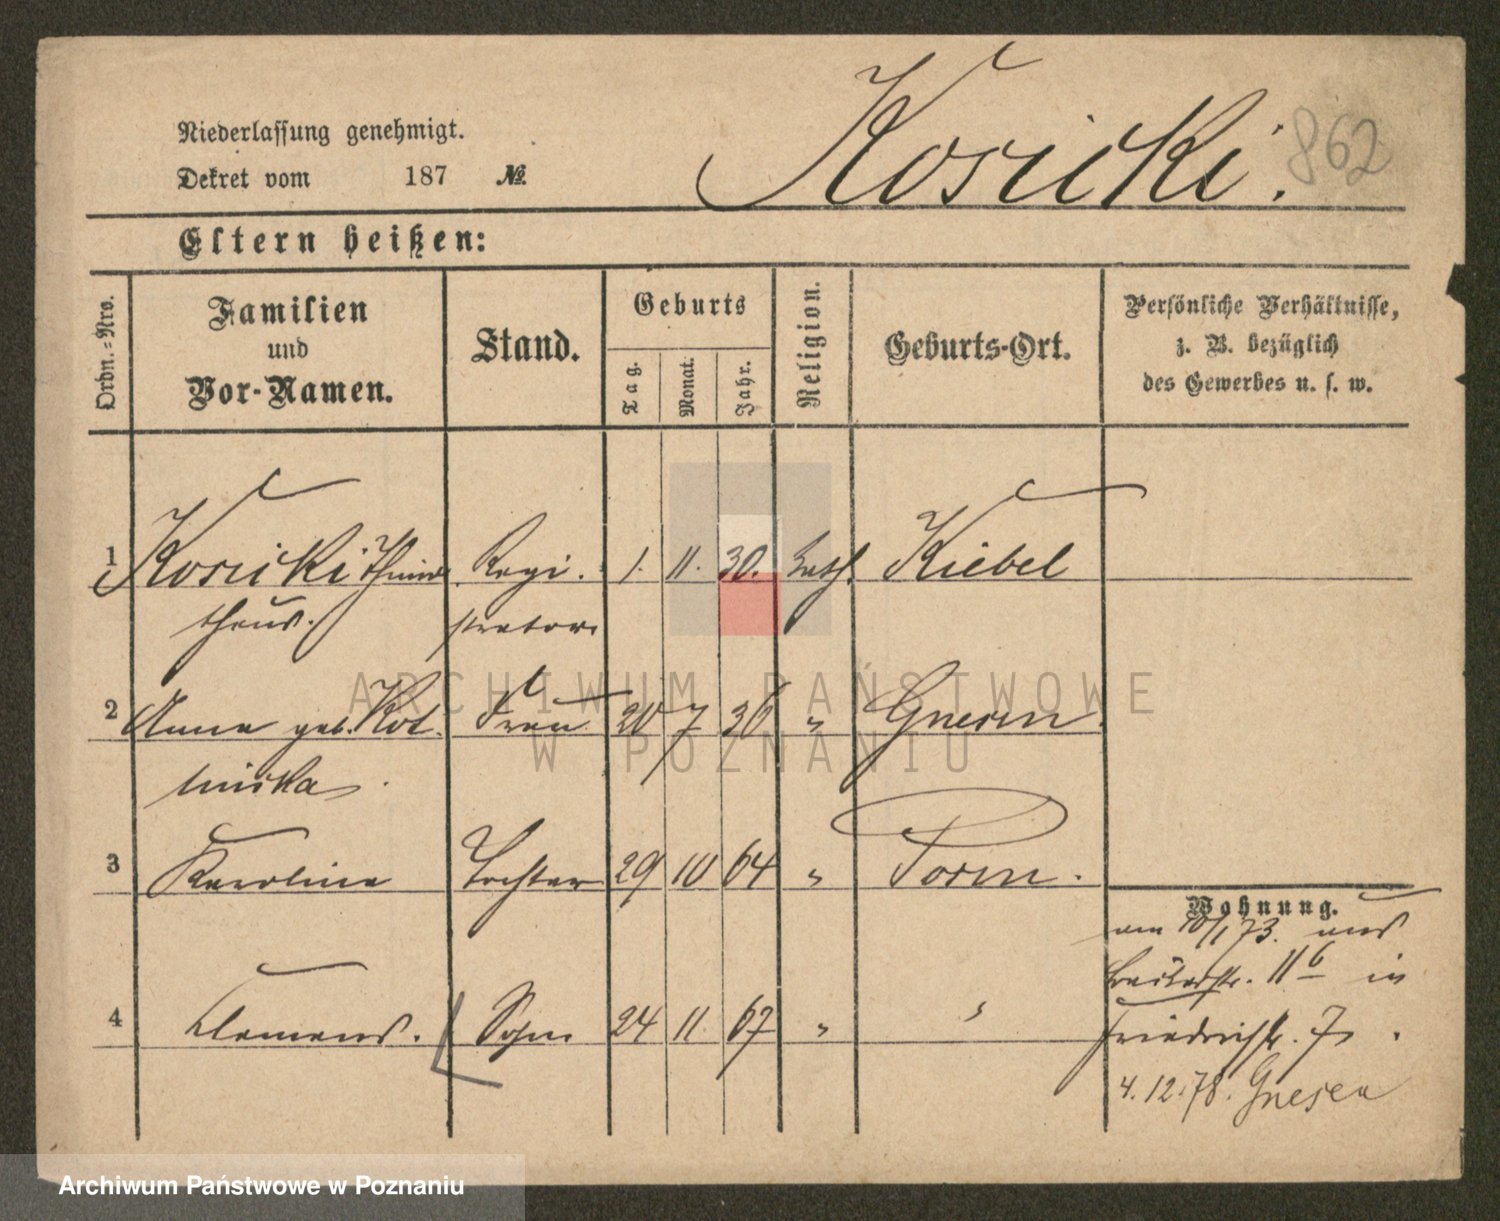 Niederlassung genehmigt.
Dekret vom 187 №
Kosicki. 862
Eltern heißen:
Ordn.-Nro.
Familien und Vor-Namen.
Stand.
Geburts
Tag.
Monat.
Jahr.
Religion.
Geburts-Ort.
Persönliche Verhältnisse,
z. B. bezüglich
des Gewerbes u. s. w.
1 Kosicki Regi. 1. 11. 30. kath. Kiebel
theus. strator
2 Anna geb. Kol Frau 20 7 36 " Gnesen.
3 Karoline Tochter 29 10 64 " Posen.
4 Clemens. Sohn 24 11. 67 " "
Wohnung.
am 10/1 73. aus
11 b in
Friedrichstr. 7
4.12.78. Gnesen
ARCHIWUM PAŃSTWOWE
W POZNANIU
Archiwum Państwowe w Poznaniu